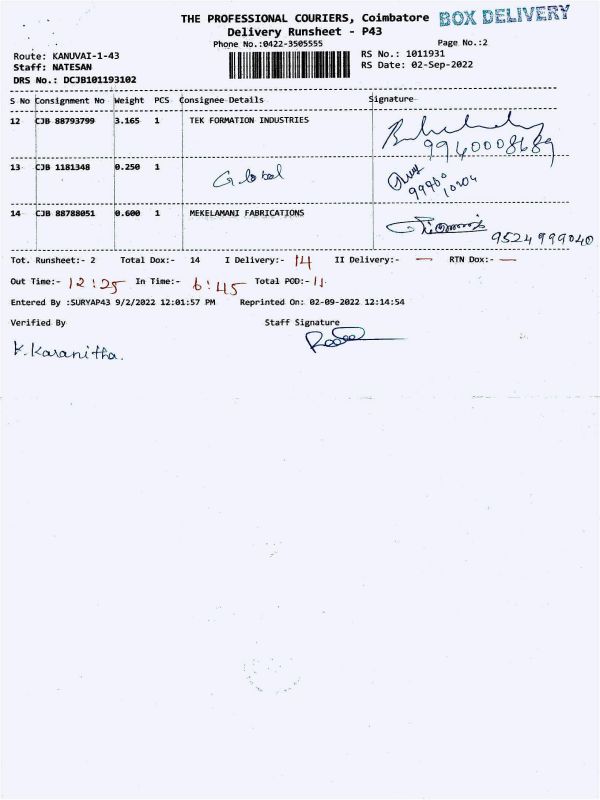 THE PROFESSIONAL COURIERS, Coimbatore BOX DELIVERY
Delivery Runsheet - P43
Phone No.:0422-3505555 Page No.:2
Route: KANUVAI-1-43 RS No.: 1011931
Staff: NATESAN RS Date: 02-Sep-2022
DRS No.: DCJB101193102
S No Consignment No Weight PCS Consignee Details Signature
12 CJB 88793799 3.165 1 TEK FORMATION INDUSTRIES
9940008689
13 CJB 1181348 0.250 1 Global
14 CJB 88788051 0.600 1 MEKELAMANI FABRICATIONS
9524999040
Tot. Runsheet:- 2 Total Dox:- 14 I Delivery:- 14 II Delivery:- — RTN Dox:- —
Out Time:- 12:25 In Time:- 6:45 Total POD:- 11
Entered By :SURYAP43 9/2/2022 12:01:57 PM Reprinted On: 02-09-2022 12:14:54
Verified By Staff Signature
K. Karanitha.